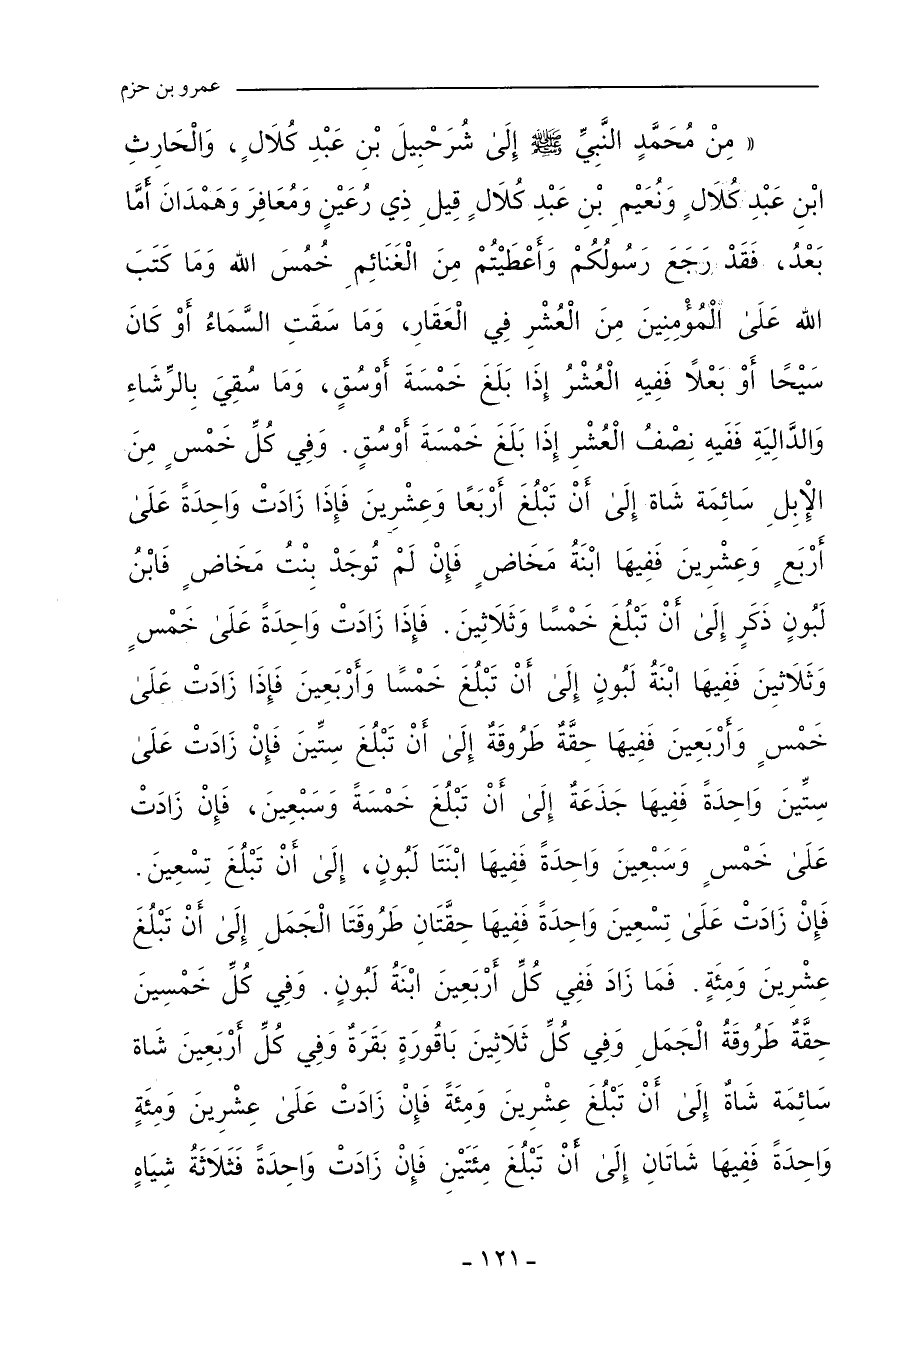 عمرو بن حزم
« مِنْ مُحَمَّدٍ النَّبِيِّ ﷺ إِلَىٰ شُرَحْبِيلَ بْنِ عَبْدِ كُلَالٍ، وَالْحَارِثِ
ابْنِ عَبْدِ كُلَالٍ وَنُعَيْمِ بْنِ عَبْدِ كُلَالٍ قِيلِ ذِي رُعَيْنٍ وَمُعَافِرَ وَهَمْدَانَ أَمَّا
بَعْدُ، فَقَدْ رَجَعَ رَسُولُكُمْ وَأَعْطَيْتُمْ مِنَ الْغَنَائِمِ خُمُسَ الله وَمَا كَتَبَ
الله عَلَىٰ الْمُؤْمِنِينَ مِنَ الْعُشْرِ فِي الْعَقَارِ، وَمَا سَقَتِ السَّمَاءُ أَوْ كَانَ
سَيْحًا أَوْ بَعْلًا فَفِيهِ الْعُشْرُ إِذَا بَلَغَ خَمْسَةَ أَوْسُقٍ، وَمَا سُقِيَ بِالرِّشَاءِ
وَالدَّالِيَةِ فَفِيهِ نِصْفُ الْعُشْرِ إِذَا بَلَغَ خَمْسَةَ أَوْسُقٍ. وَفِي كُلِّ خَمْسٍ مِنَ
الْإِبِلِ سَائِمَة شَاة إِلَىٰ أَنْ تَبْلُغَ أَرْبَعًا وَعِشْرِينَ فَإِذَا زَادَتْ وَاحِدَةً عَلَىٰ
أَرْبَعٍ وَعِشْرِينَ فَفِيهَا ابْنَةُ مَخَاضٍ فَإِنْ لَمْ تُوجَدْ بِنْتُ مَخَاضٍ فَابْنُ
لَبُونٍ ذَكَرٍ إِلَىٰ أَنْ تَبْلُغَ خَمْسًا وَثَلَاثِينَ. فَإِذَا زَادَتْ وَاحِدَةً عَلَىٰ خَمْسٍ
وَثَلَاثِينَ فَفِيهَا ابْنَةُ لَبُونٍ إِلَىٰ أَنْ تَبْلُغَ خَمْسًا وَأَرْبَعِينَ فَإِذَا زَادَتْ عَلَىٰ
خَمْسٍ وَأَرْبَعِينَ فَفِيهَا حِقَّةٌ طَرُوقَةٌ إِلَىٰ أَنْ تَبْلُغَ سِتِّينَ فَإِنْ زَادَتْ عَلَىٰ
سِتِّينَ وَاحِدَةً فَفِيهَا جَذَعَةٌ إِلَىٰ أَنْ تَبْلُغَ خَمْسَةً وَسَبْعِينَ، فَإِنْ زَادَتْ
عَلَىٰ خَمْسٍ وَسَبْعِينَ وَاحِدَةً فَفِيهَا ابْنَتَا لَبُونٍ، إِلَىٰ أَنْ تَبْلُغَ تِسْعِينَ.
فَإِنْ زَادَتْ عَلَىٰ تِسْعِينَ وَاحِدَةً فَفِيهَا حِقَّتَانِ طَرُوقَتَا الْجَمَلِ إِلَىٰ أَنْ تَبْلُغَ
عِشْرِينَ وَمِئَةٍ. فَمَا زَادَ فَفِي كُلِّ أَرْبَعِينَ ابْنَةُ لَبُونٍ. وَفِي كُلِّ خَمْسِينَ
حِقَّةٌ طَرُوقَةُ الْجَمَلِ وَفِي كُلِّ ثَلَاثِينَ بَاقُورَةٍ بَقَرَةٌ وَفِي كُلِّ أَرْبَعِينَ شَاة
سَائِمَة شَاةٌ إِلَىٰ أَنْ تَبْلُغَ عِشْرِينَ وَمِئَةً فَإِنْ زَادَتْ عَلَىٰ عِشْرِينَ وَمِئَةٍ
وَاحِدَةً فَفِيهَا شَاتَانِ إِلَىٰ أَنْ تَبْلُغَ مِئَتَيْنِ فَإِنْ زَادَتْ وَاحِدَةً فَثَلَاثَةُ شِيَاهٍ
- ١٢١ -